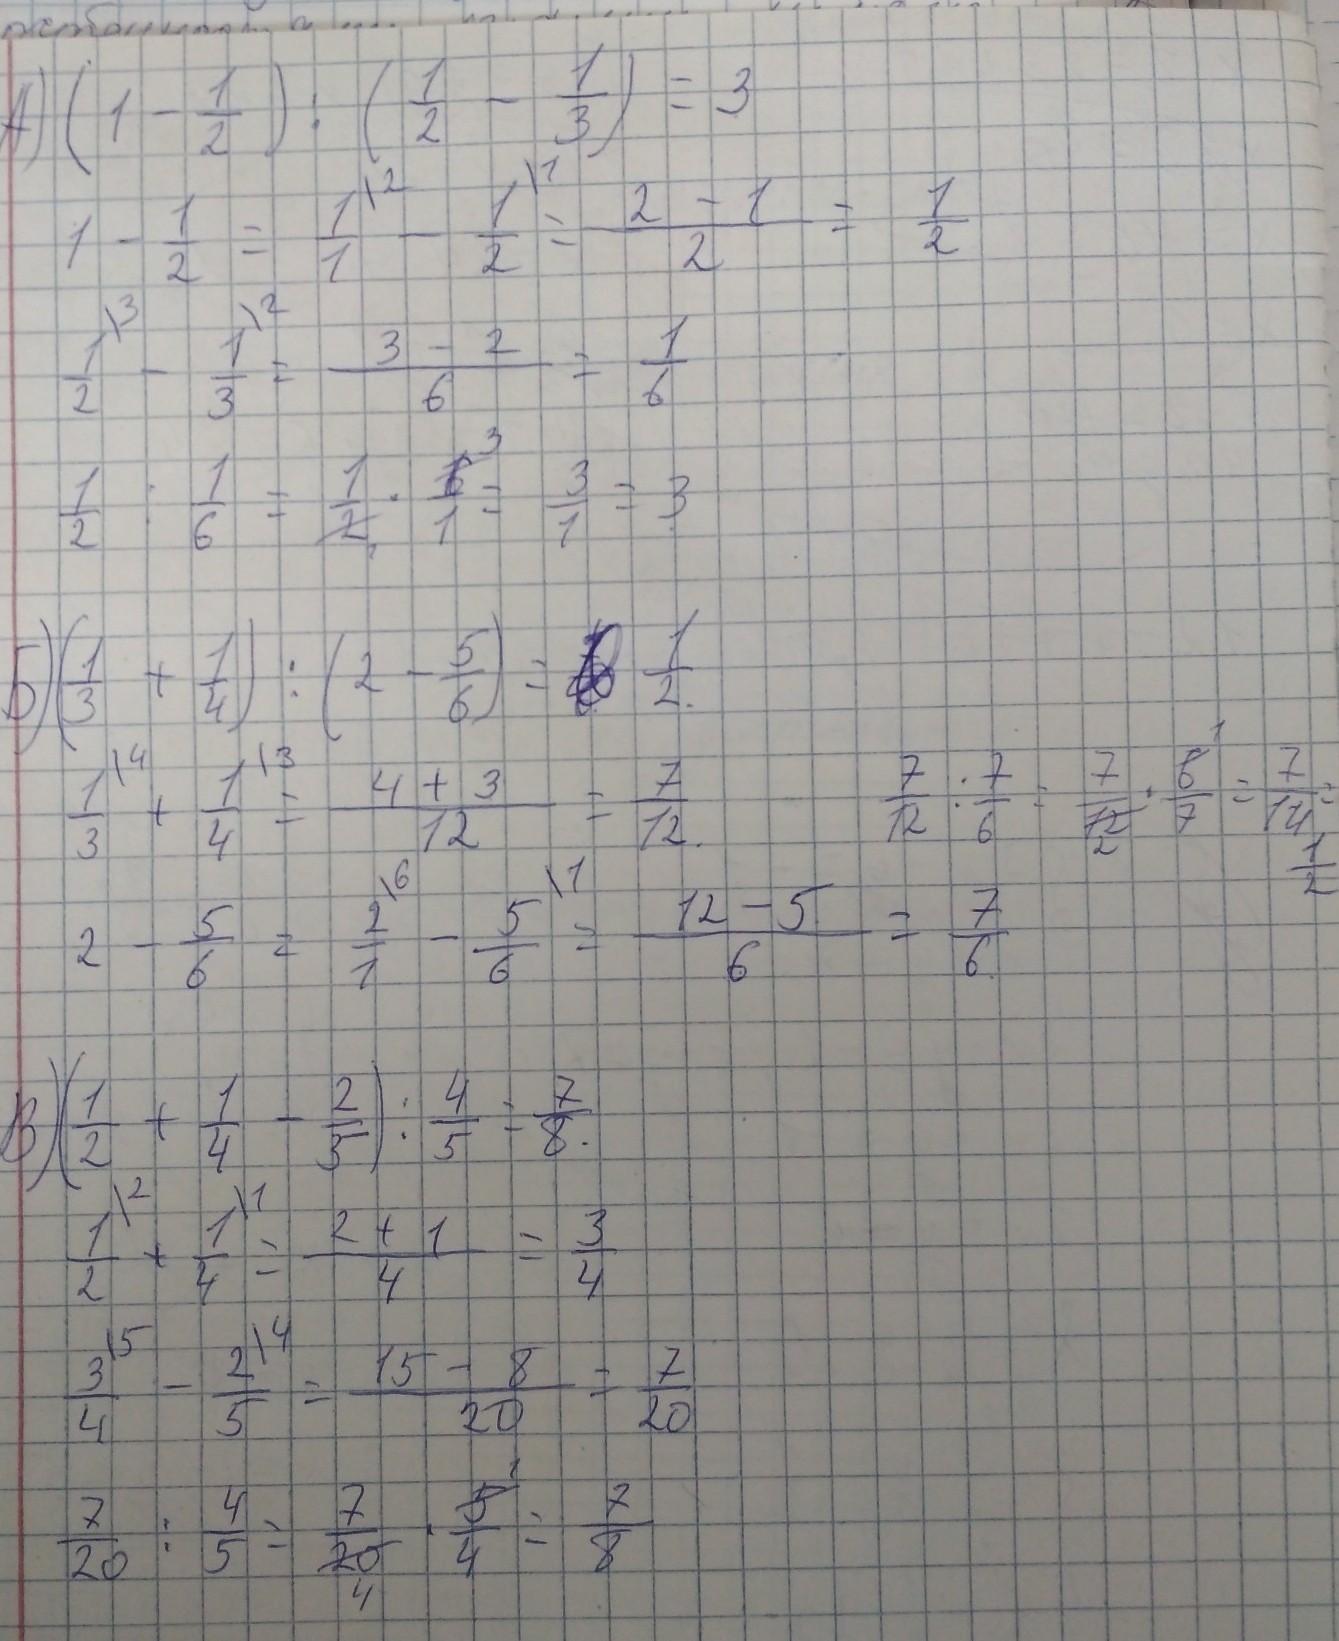 А) (1 - 1/2) : (1/2 - 1/3) = 3
1 - 1/2 = 1/1 \2 - 1/2 \1 = (2 - 1)/2 = 1/2
1/2 \3 - 1/3 \2 = (3 - 2)/6 = 1/6
1/2 : 1/6 = 1/2 1 · 6 3/1 = 3/1 = 3
Б) (1/3 + 1/4) : (2 - 5/6) = 1/2.
1/3 \4 + 1/4 \3 = (4 + 3)/12 = 7/12. 7/12 : 7/6 = 7/12 2 · 6 1/7 = 7/14 = 1/2
2 - 5/6 = 2/1 \6 - 5/6 \1 = (12 - 5)/6 = 7/6.
В) (1/2 + 1/4 - 2/5) : 4/5 = 7/8.
1/2 \2 + 1/4 \1 = (2 + 1)/4 = 3/4
3/4 \5 - 2/5 \4 = (15 - 8)/20 = 7/20
7/20 : 4/5 = 7/20 4 · 5 1/4 = 7/8